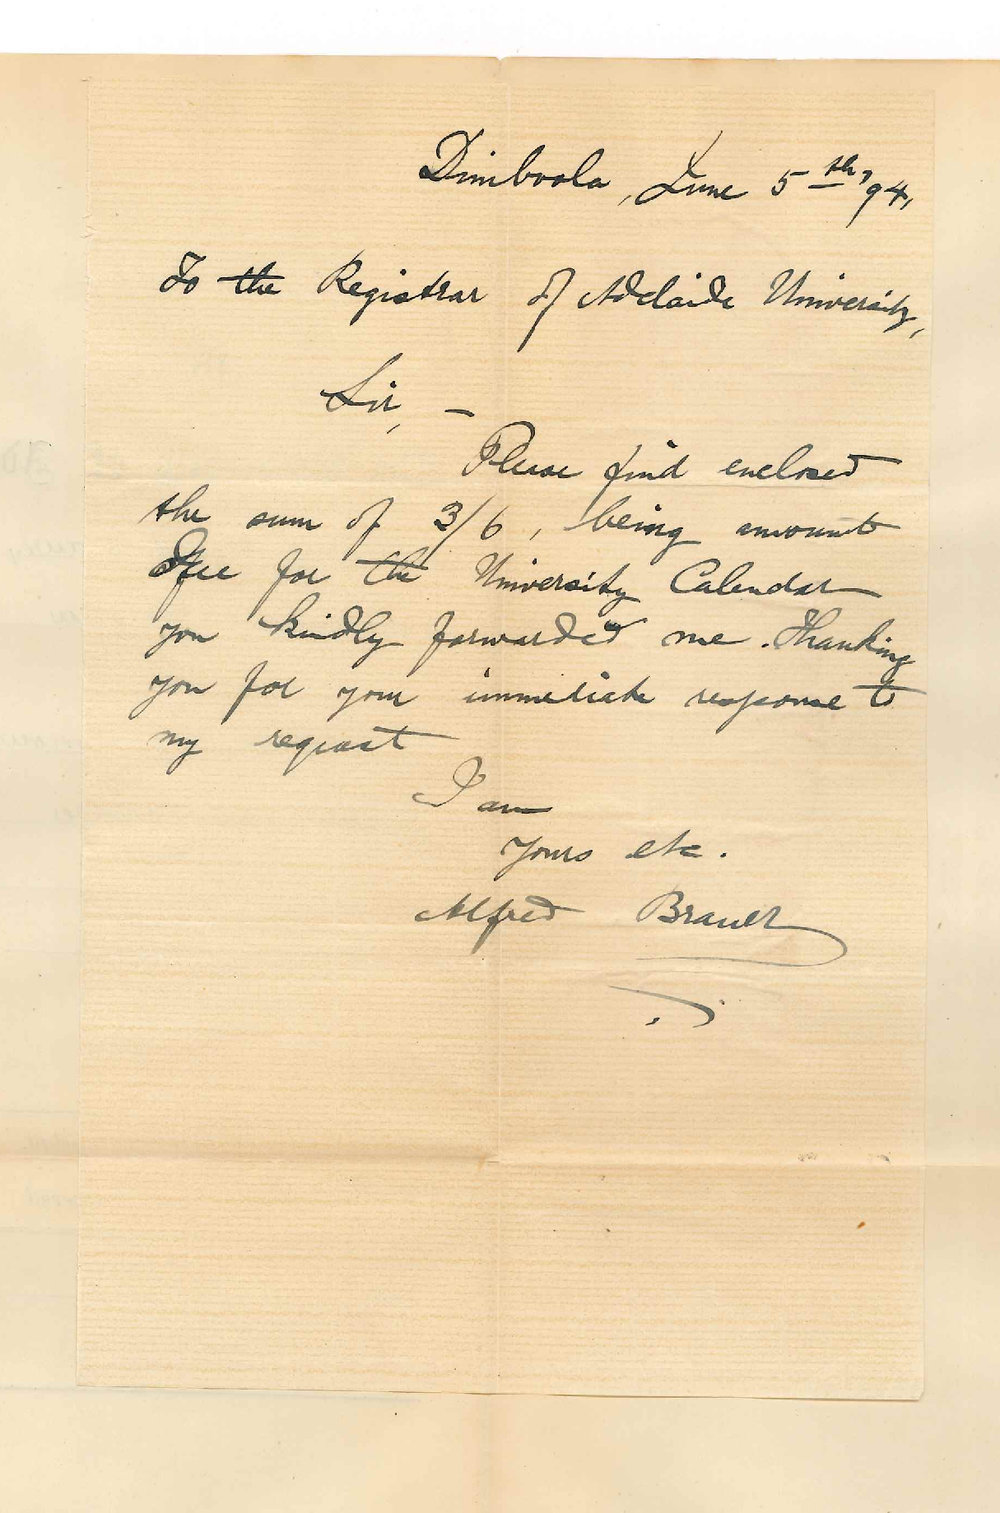 Dimboola, June 5th, '94,
To the Registrar of Adelaide University,
Sir, —
Please find enclosed
the sum of 3/6, being amount
of fee for the University Calendar
you kindly forwarded me. Thanking
you for your immediate response to
my request
I am
Yours etc.
Alfred Brauer